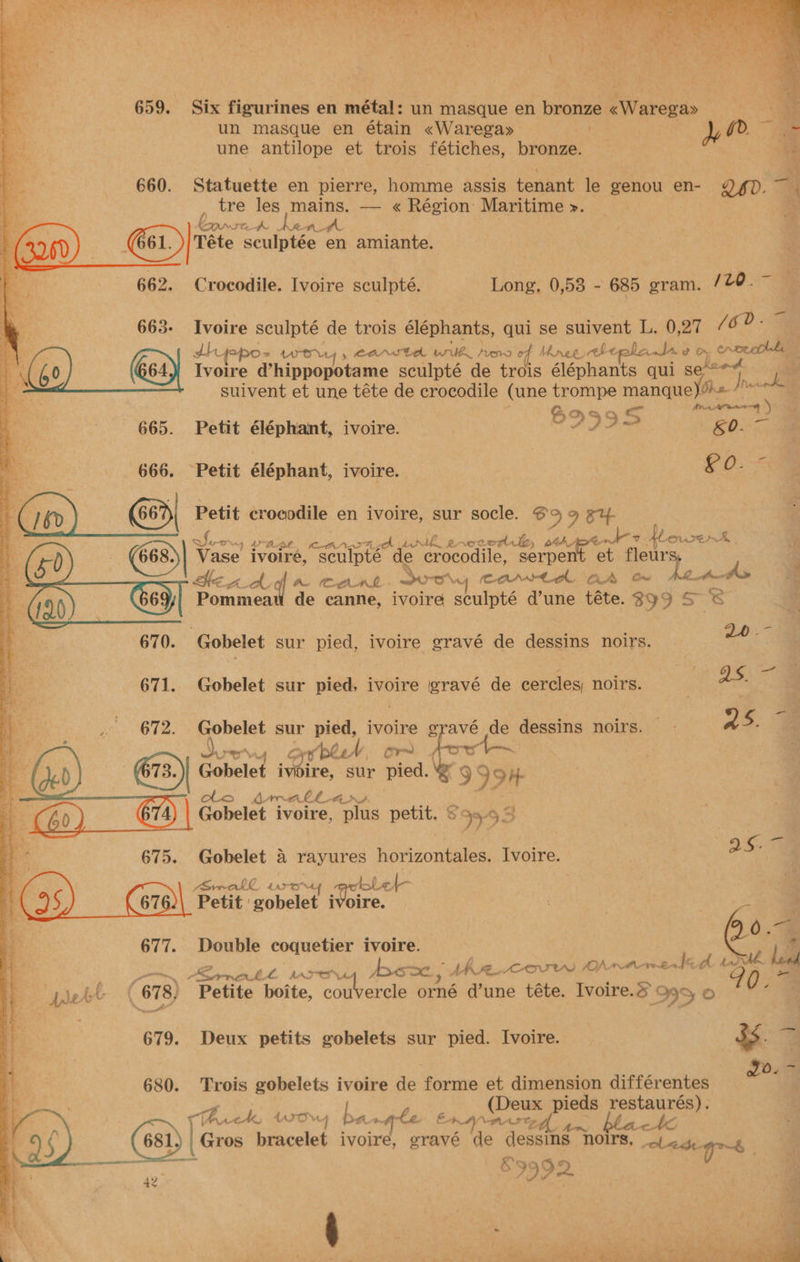 659. Six figurines en métal: un masque en bronze «Warega»
un masque en étain «Warega»
une antilope et trois fétiches, bronze.
660. Statuette en pierre, homme assis tenant le genou en-
tre les mains. — « Région Maritime ».
661. Tête sculptée en amiante.
662. Crocodile. Ivoire sculpté. Long, 0,53 - 685 gram. 120.-
663. Ivoire sculpté de trois éléphants, qui se suivent L. 0,27 160.-
60 664. Ivoire d'hippopotame sculpté de trois éléphants qui se
suivent et une tête de crocodile (une trompe manque)
89995
665. Petit éléphant, ivoire. 80.-
666. Petit éléphant, ivoire. 80.-
160 667. Petit crocodile en ivoire, sur socle. 89984
50 668. Vase ivoire, sculpté de crocodile, serpent et fleurs,
Head of a cane. Ivory carved as a head
120 669. Pommeau de canne, ivoire sculpté d'une tête. 8995
670. Gobelet sur pied, ivoire gravé de dessins noirs. 20.-
671. Gobelet sur pied, ivoire gravé de cercles, noirs. 25.-
672. Gobelet sur pied, ivoire gravé de dessins noirs. 25.-
Ivory goblet, on foot
673. Gobelet ivoire, sur pied. 89994
do smaller
60 674 Gobelet ivoire, plus petit. 89993
675. Gobelet à rayures horizontales. Ivoire. 25.-
Small ivory goblet
676. Petit gobelet ivoire.
677. Double coquetier ivoire.
Small ivory box, the cover ornamented with head
678) Petite boîte, couvercle orné d'une tête. Ivoire.
679. Deux petits gobelets sur pied. Ivoire. 35.-
680. Trois gobelets ivoire de forme et dimension différentes
(Deux pieds restaurés).
Thick ivory bangle engraved in black
681. Gros bracelet ivoire, gravé de dessins noirs.
89992
42